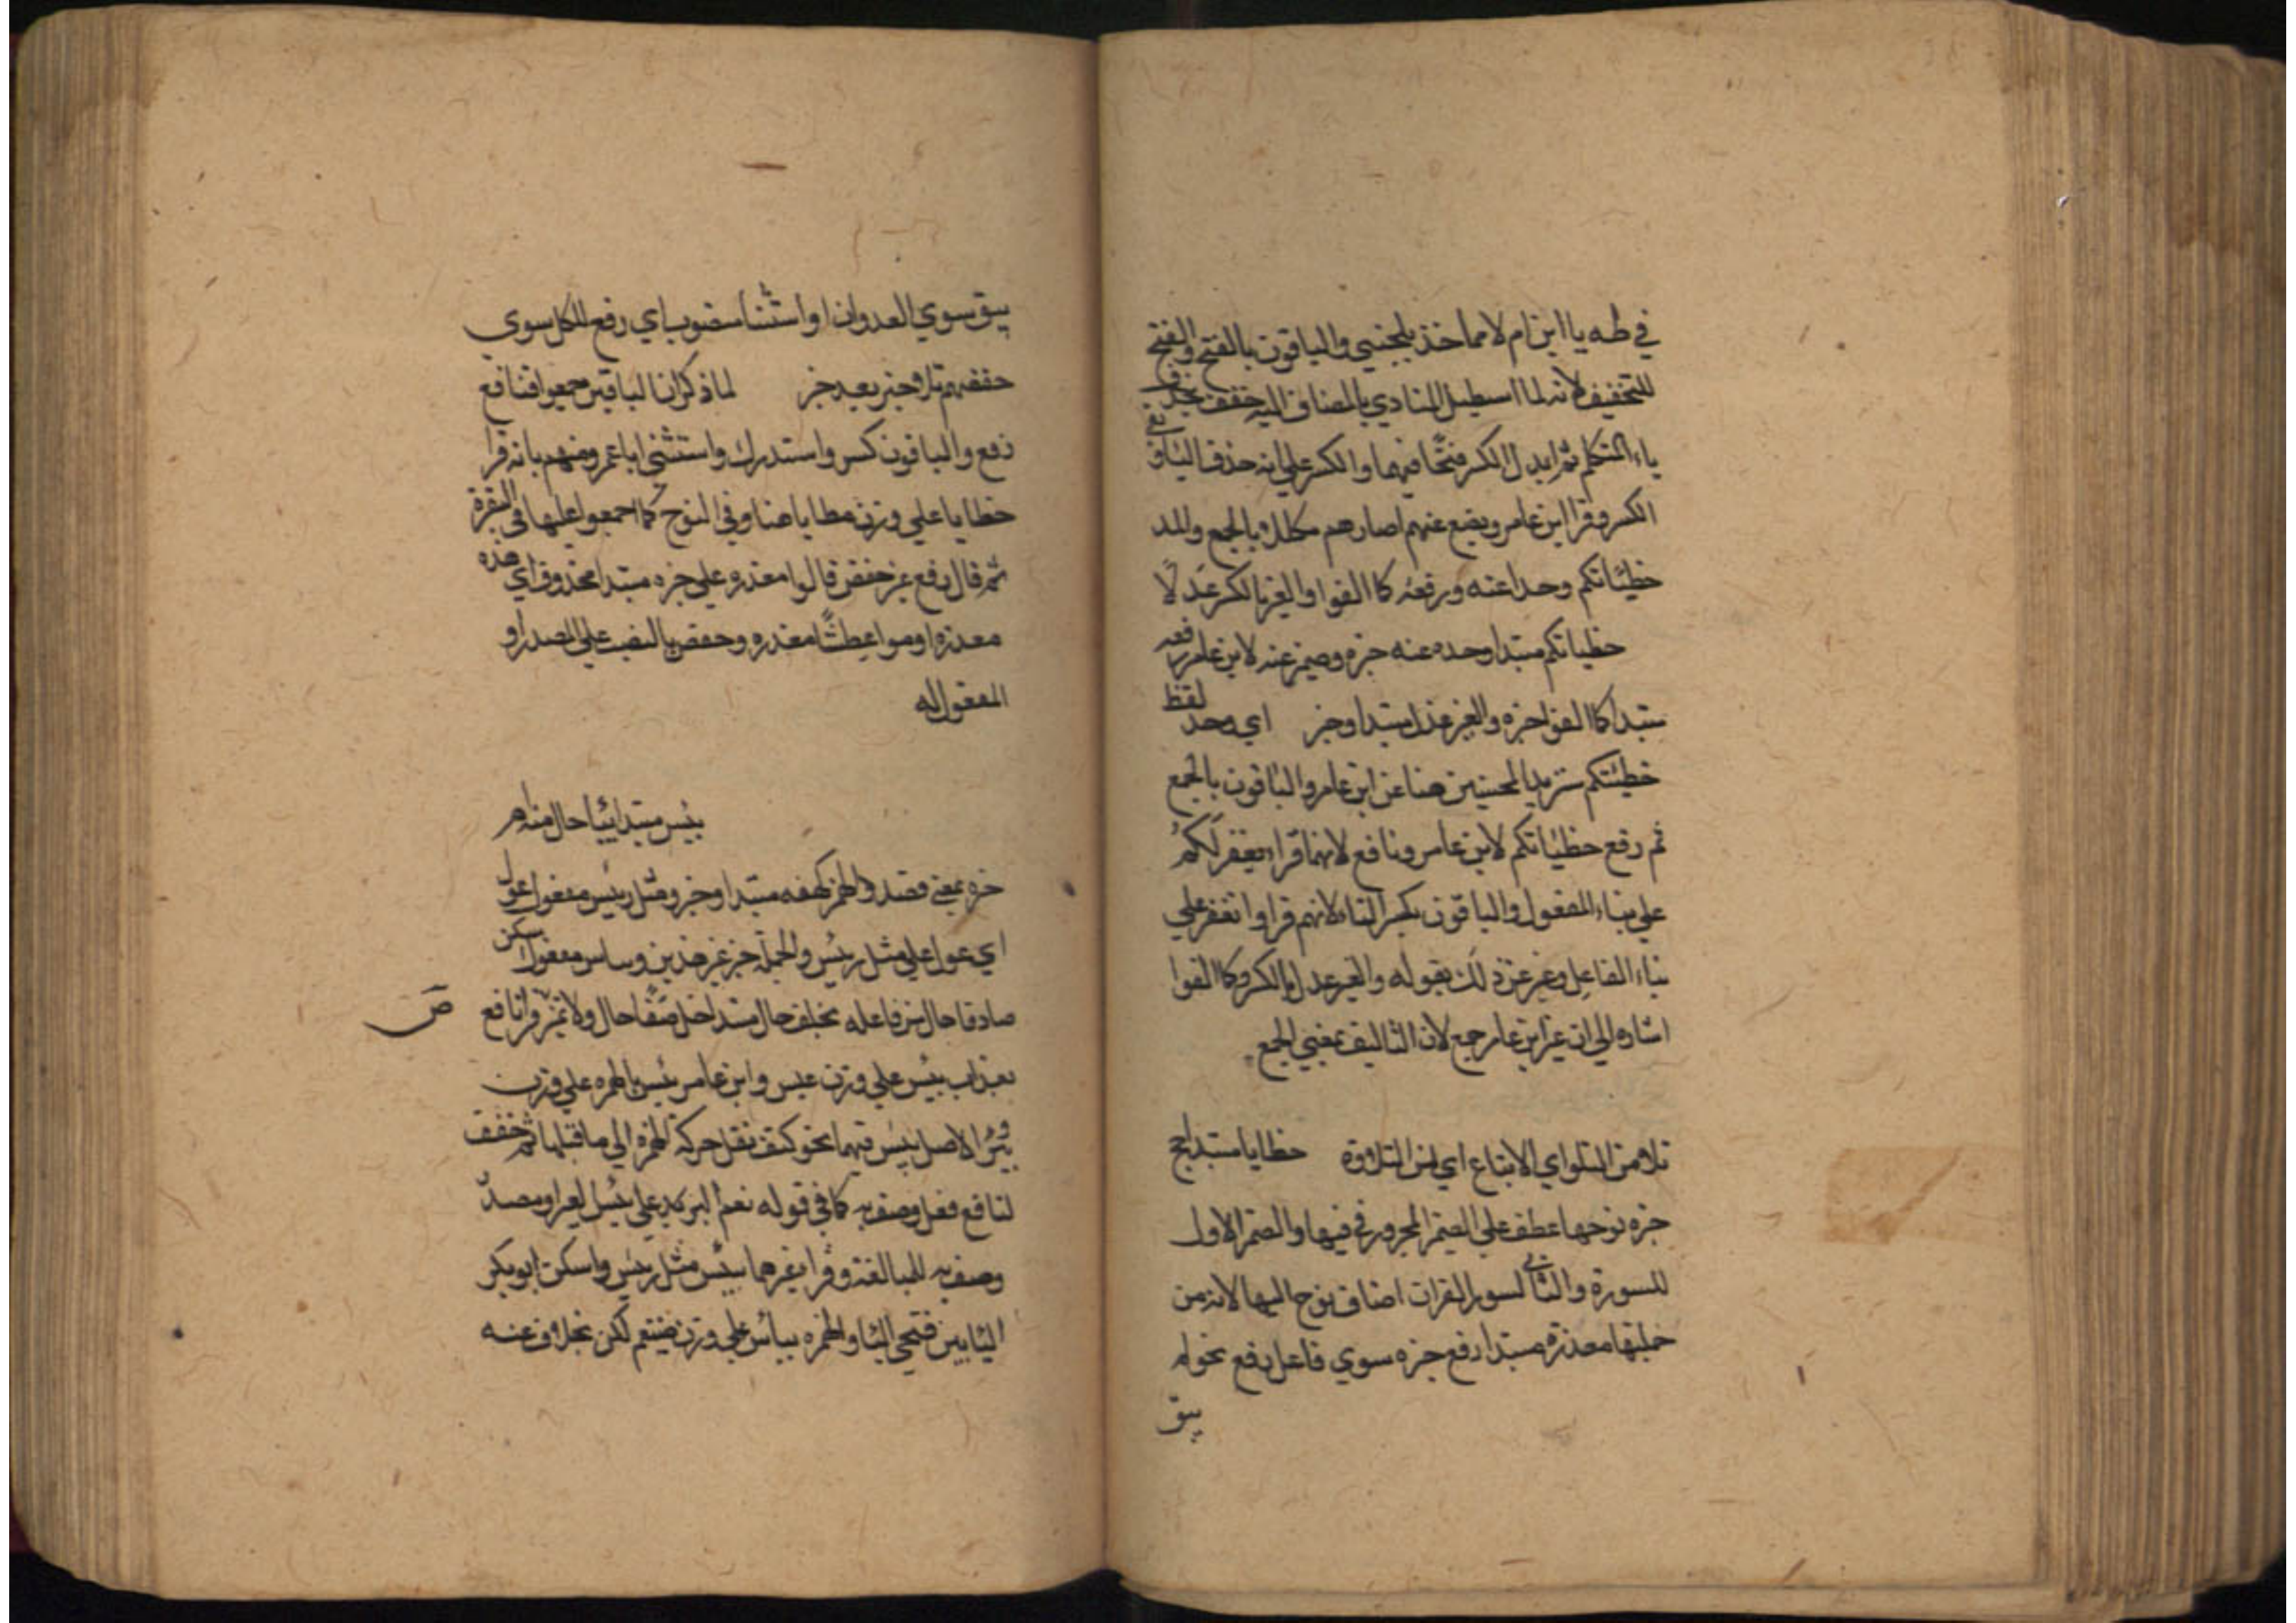 في طه يا ابن ام لا مما خذ بلحيتي والباقون بالفتح والفتح
للتخفيف لانه لما استطيل المنادي بالمضاف اليه خفف بحذف
ياء المتكلم ثم ابدل الكسر فتحا فيهما والكسر علي انه حذف اليا وبقي
الكسر وقرا ابن عامر ويضع عنهم اصارهم مكلل بالجمع والمد
خطيئاتكم وحد اعنه ورفعه كا الفوا والغير بالكسر عدلا
خطياتكم مبتدا وحده عنه خبره وضمير عنه لابن عامر رفعه
مبتدا كما الفوا خبره والغير عدل مبتدا وخبر اي وحد لفظ
خطيئتكم سنزيد المحسنين هنا عن ابن عامر والباقون بالجمع
ثم رفع خطيئاتكم لابن عامر ونافع لانهما قرا تغفر لكم
علي بناء المفعول والباقون بكسر التاء لانهم قراوا نغفر علي
بناء الفاعل وعبر عن ذلك بقوله والغير عدل بالكسر وكا الفوا
اشاره الي ان غير ابن عامر جمع لان التاليف بمعني الجمع
تلا من التلو اي الاتباع اي من التلاوة خطايا مبتدا حج
خبره نوحها عطف علي الضمير المجرور في فيها والضمير الاول
للسورة والثاني لسور القران اضاف نوح اليها لانه من
جملتها معذرة مبتدا رفع خبره سوي فاعل رفع نحو لم
يبق
يبق سوي العدوان او استثنا منصوب اي رفع الكل سوي
حفصهم تلا وخبر بعيد خبر لما ذكر ان الباقين جمعوا فنافع
رفع والباقون كسر واستدرك واستثني ابا عمرو منهم بانه قرا
خطايا علي وزن مطايا هنا وفي النوح كما اجمعوا عليها في البقرة
ثم قال رفع غير حفص قالوا معذره علي خبره مبتدا محذوف اي هذه
معذره او موا عظتنا معذره وحفص بالنصب علي المصدر او
المفعول له
بيس مبتدا بيا حال منه ام
خبره بمعني قصد والهمز كهفه مبتدا وخبر ومثل رئيس مفعول عول
اي عول علي مثل رئيس والجملة خبر غير هذين وبياس مفعول اسكن
صادقا حال من فاعله بخلف حال مبتدا خل صفا حال ولا تميز قرا نافع
ص
بعذاب بيس علي وزن عيس وابن عامر بئس بالهمزه علي وزن
بئر والاصل بئس فيهما نحو كتف نقل حركة الهمزه الي ما قبلها ثم خفف
لنافع فعل وصف به كما في قوله نعم البر كد علي بئس العير او مصدر
وصف به للمبالغة وقرا غيرهما بئيس مثل رئيس واسكن ابو بكر
اليا بين فتحي اليا والهمزه بيأس علي وزن ضيغم لكن بخلاف عنه